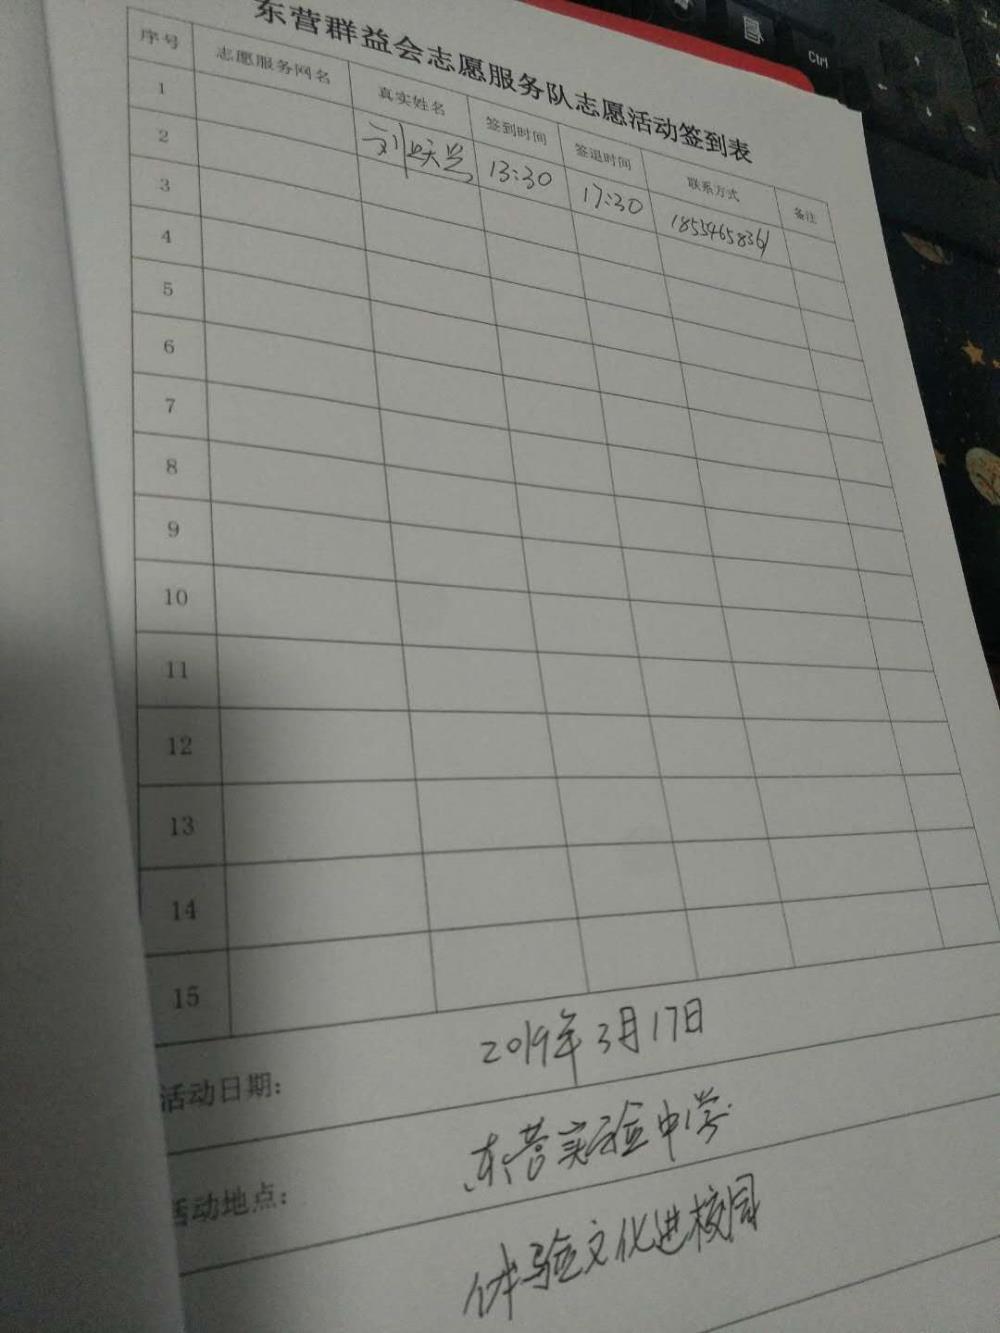 东营群益会志愿服务队志愿活动签到表
序号 志愿服务网名 真实姓名 签到时间 签退时间 联系方式 备注
1 刘跃兰 13:30 17:30 18554658361
2
3
4
5
6
7
8
9
10
11
12
13
14
15
活动日期: 2019年3月17日
活动地点: 东营实验中学
体验文化进校园
Ctrl